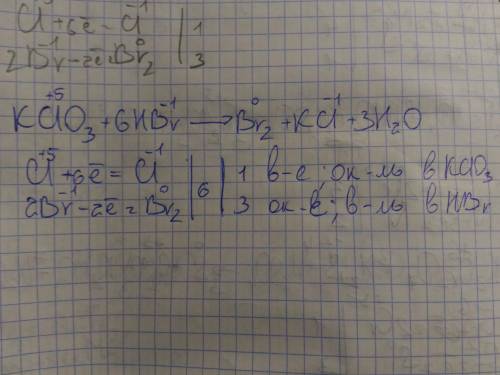 Cl +6ē - Cl⁻¹ | 1
2Br⁻¹ - 2ē = Br₂⁰ | 3
KCl⁺⁵O₃ + 6HBr⁻¹ → Br₂⁰ + KCl⁻¹ + 3H₂O
Cl⁺⁵ + 6ē = Cl⁻¹ | 6 | 1 в-е; ок-ль в KClO₃
2Br⁻¹ - 2ē = Br₂⁰ | | 3 ок-е; в-ль в HBr